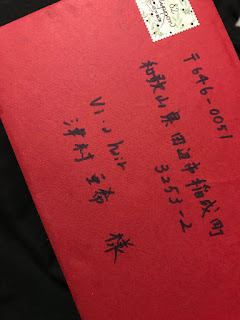 82
〒646-0051
和歌山県田辺市稲成町
3253-2
hair
津村 様